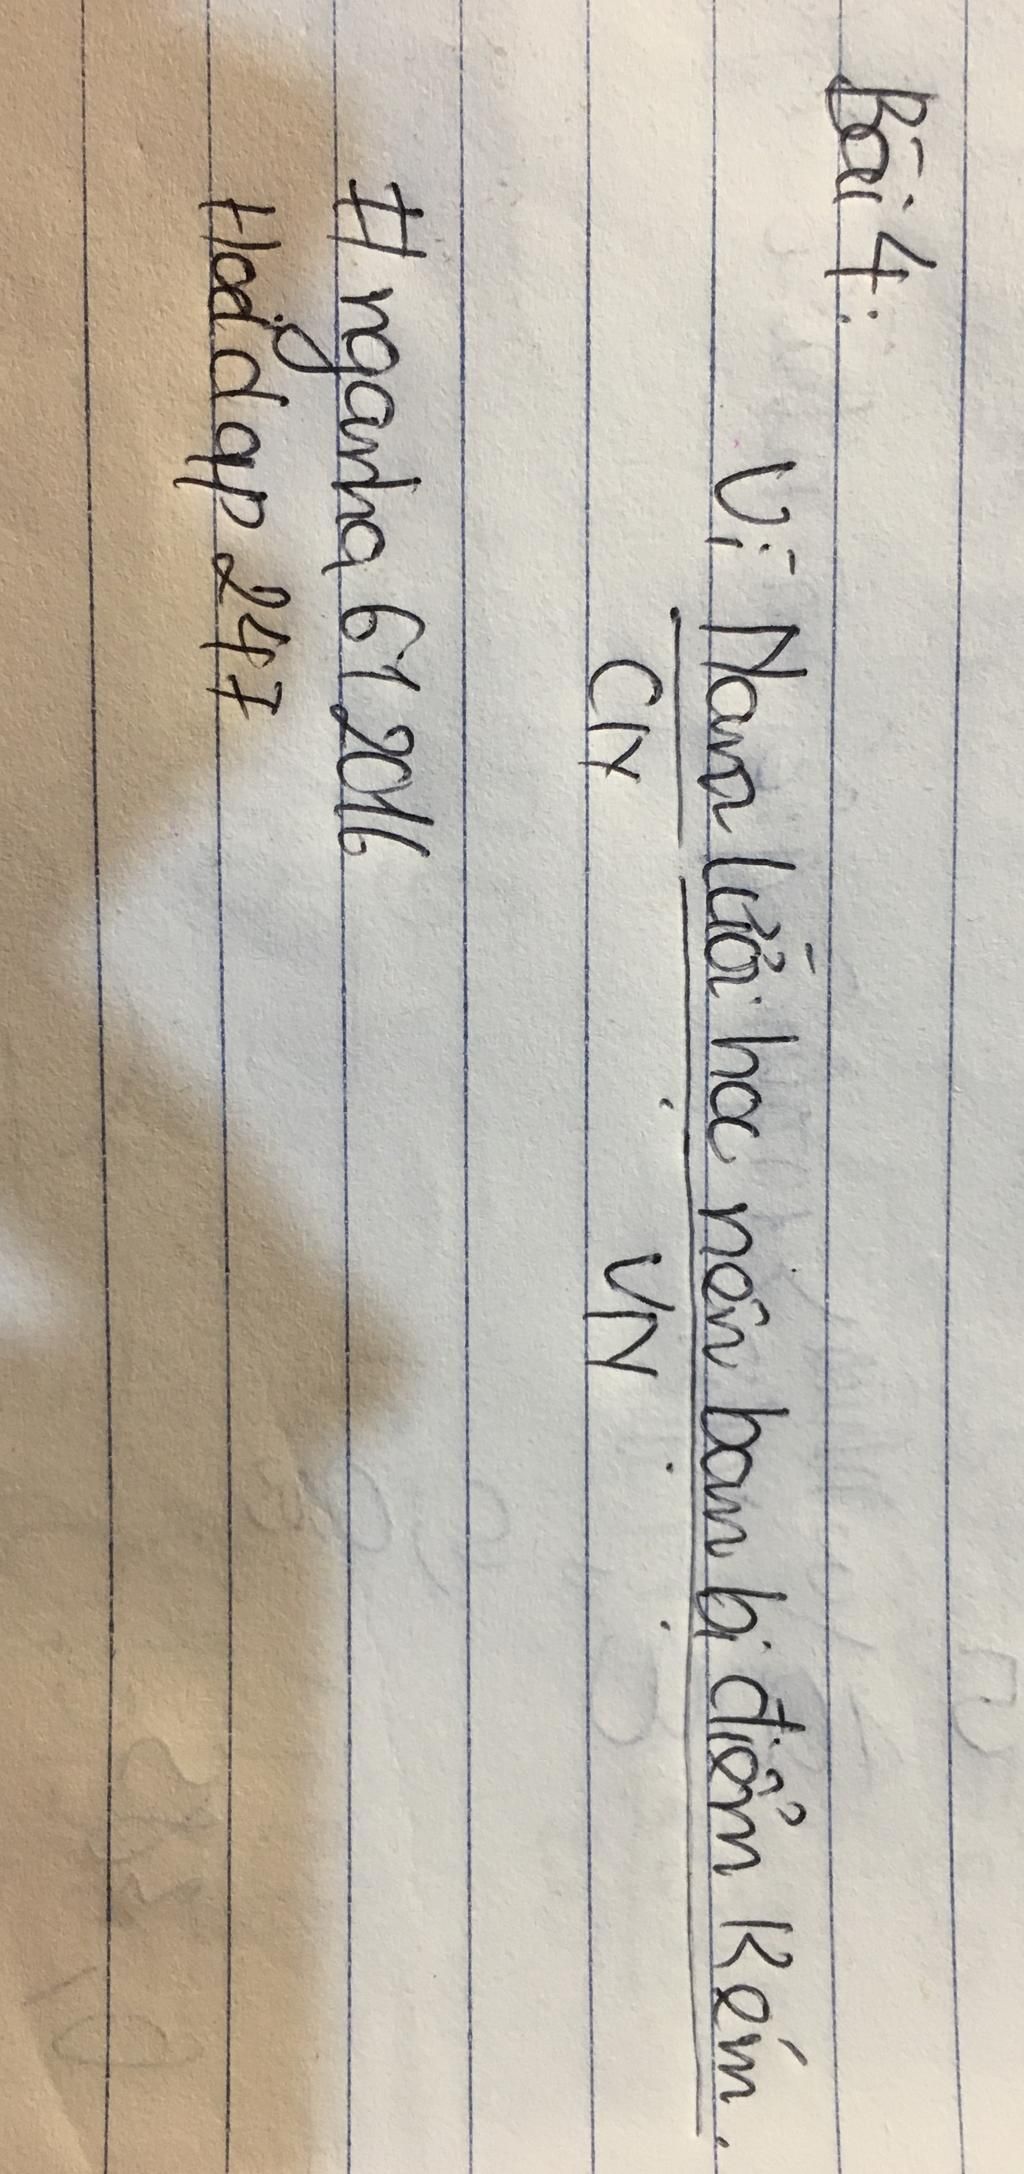 Bài 4:
Vì Nam lười học nên bạn bị điểm kém.
CN VN
# nganha612016
Hoidap247